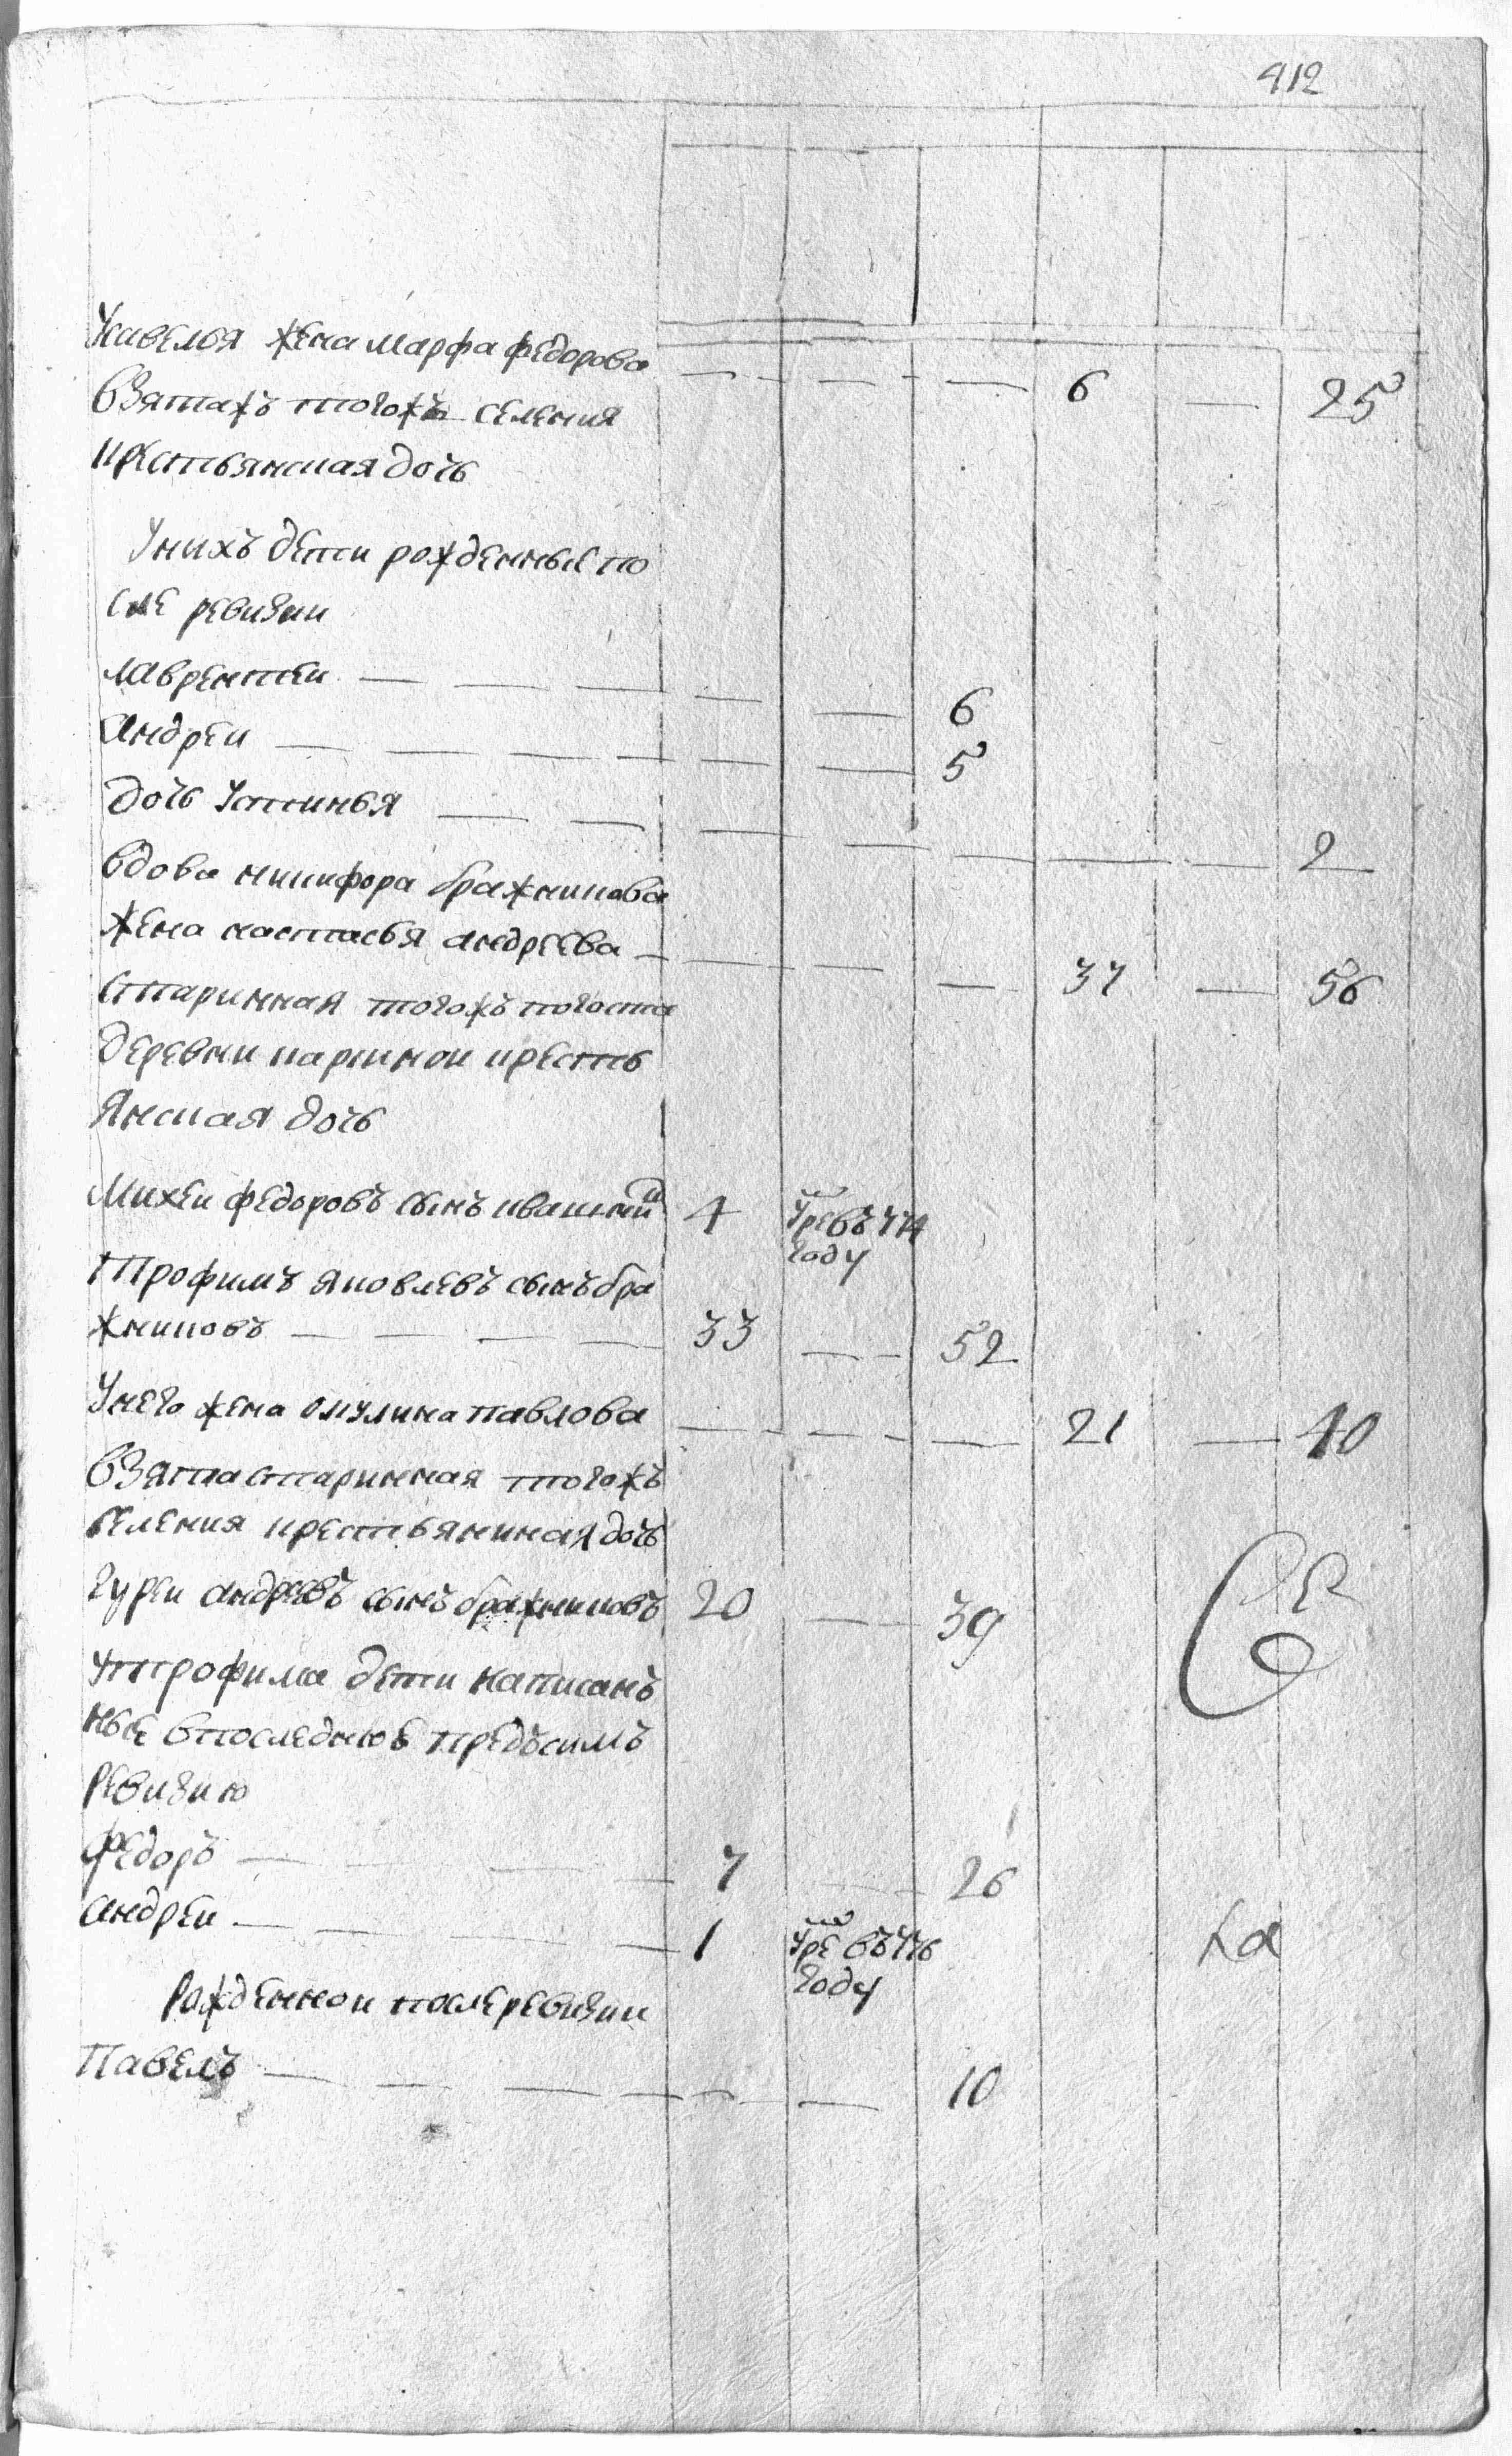 412
Усавелья жена марфа федорова — — — 6 — 25
Взятажъ тогожъ селения
крстьянская дочь
Унихъ дети рожденныя по
сле ревизии
лаврентеи — — — — — 6
андреи — — — — — 5
дочь устинья — — — — — — — 2
вдова никифора бражникова
жена настасья андреева — — — — 37 — 56
старинная тогожъ погоста
деревни каршнои кресть
янская дочь
Михеи федоровъ сынъ ивашкин 4 умре въ 774
году
Трофимъ яковлевъ сынъ бра
жниковъ — — — — 33 — — 52
Унего жена окулина павлова — — — — 21 — 40
Взята старинная тогожъ
селения крестьянкная дочь
гуреи андреевъ сынъ бражниковъ 20 — 39
утрофима дети написанъ
ные впоследнюю предъсимъ
ревизию
федоръ — — — — 7 — — 26
андреи — — — — 1 умре въ 776
году
рожденнои послеревизии
Павелъ — — — — — — 10